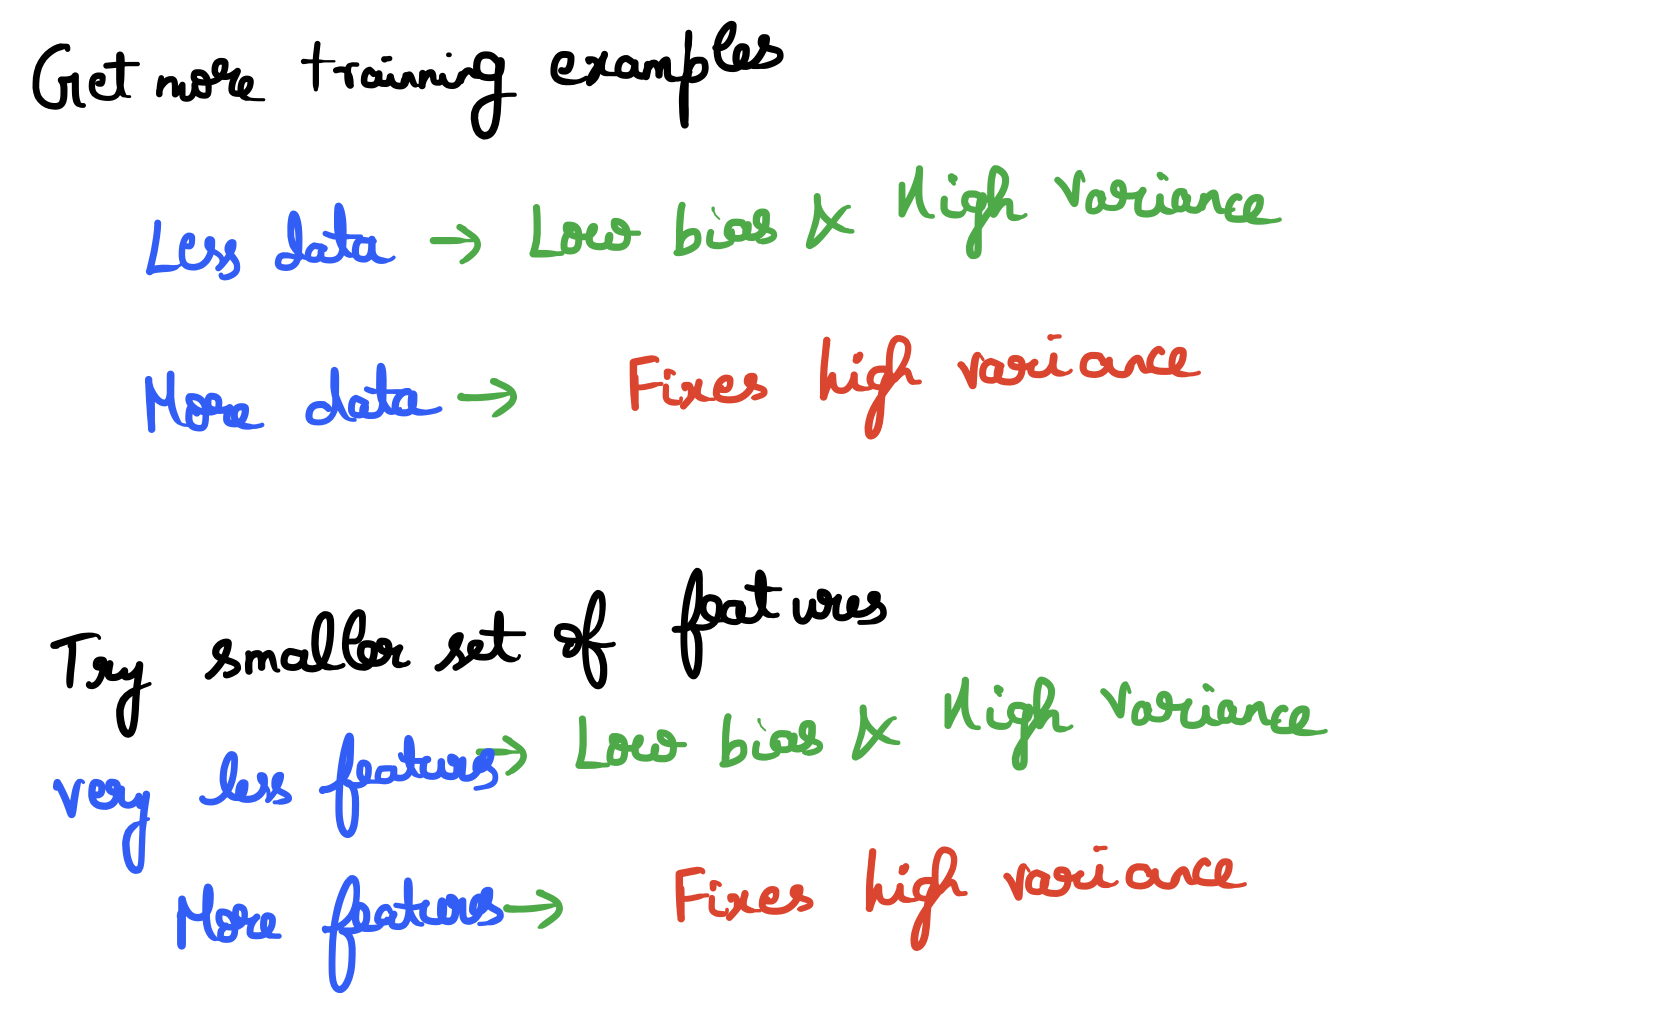 Get more training examples
Less data → Low bias & High variance
More data → Fixes high variance
Try smaller set of features
very less features → Low bias & High variance
More features → Fixes high variance